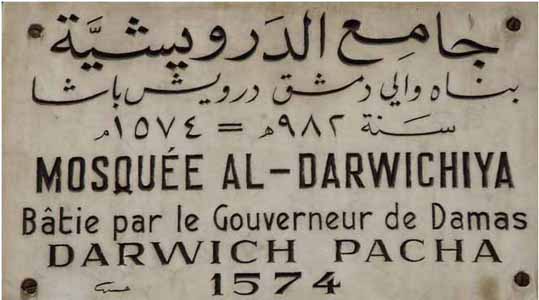 جامع الدَرويشيَّة
بناه والي دمشق درويش باشا
سَنة ٩٨٢ هـ = ١٥٧٤ م
MOSQUÉE AL-DARWICHIYA
Bâtie par le Gouverneur de Damas
DARWICH PACHA
1574